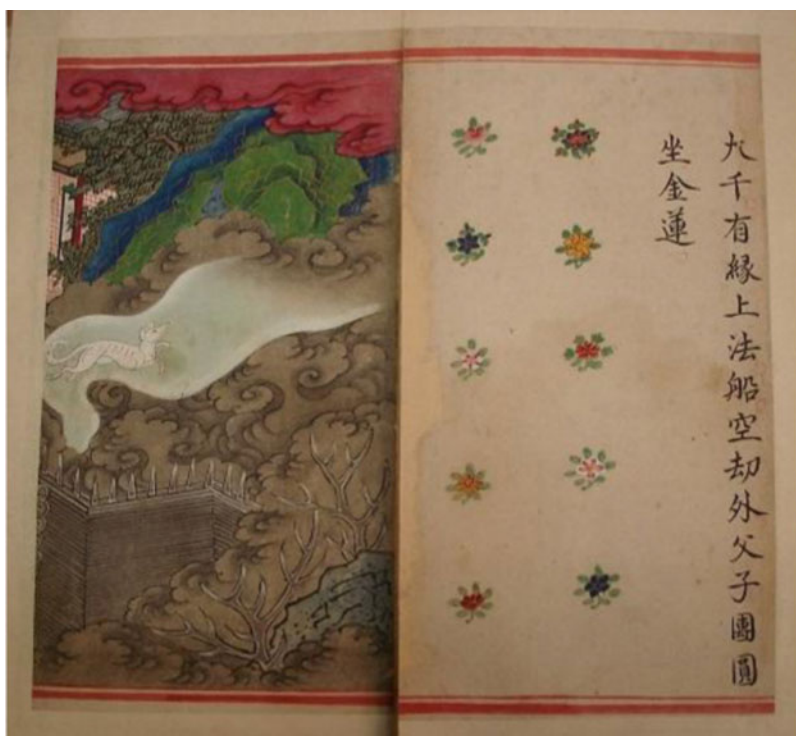 九千有緣上法船空劫外父子團圓
坐金蓮